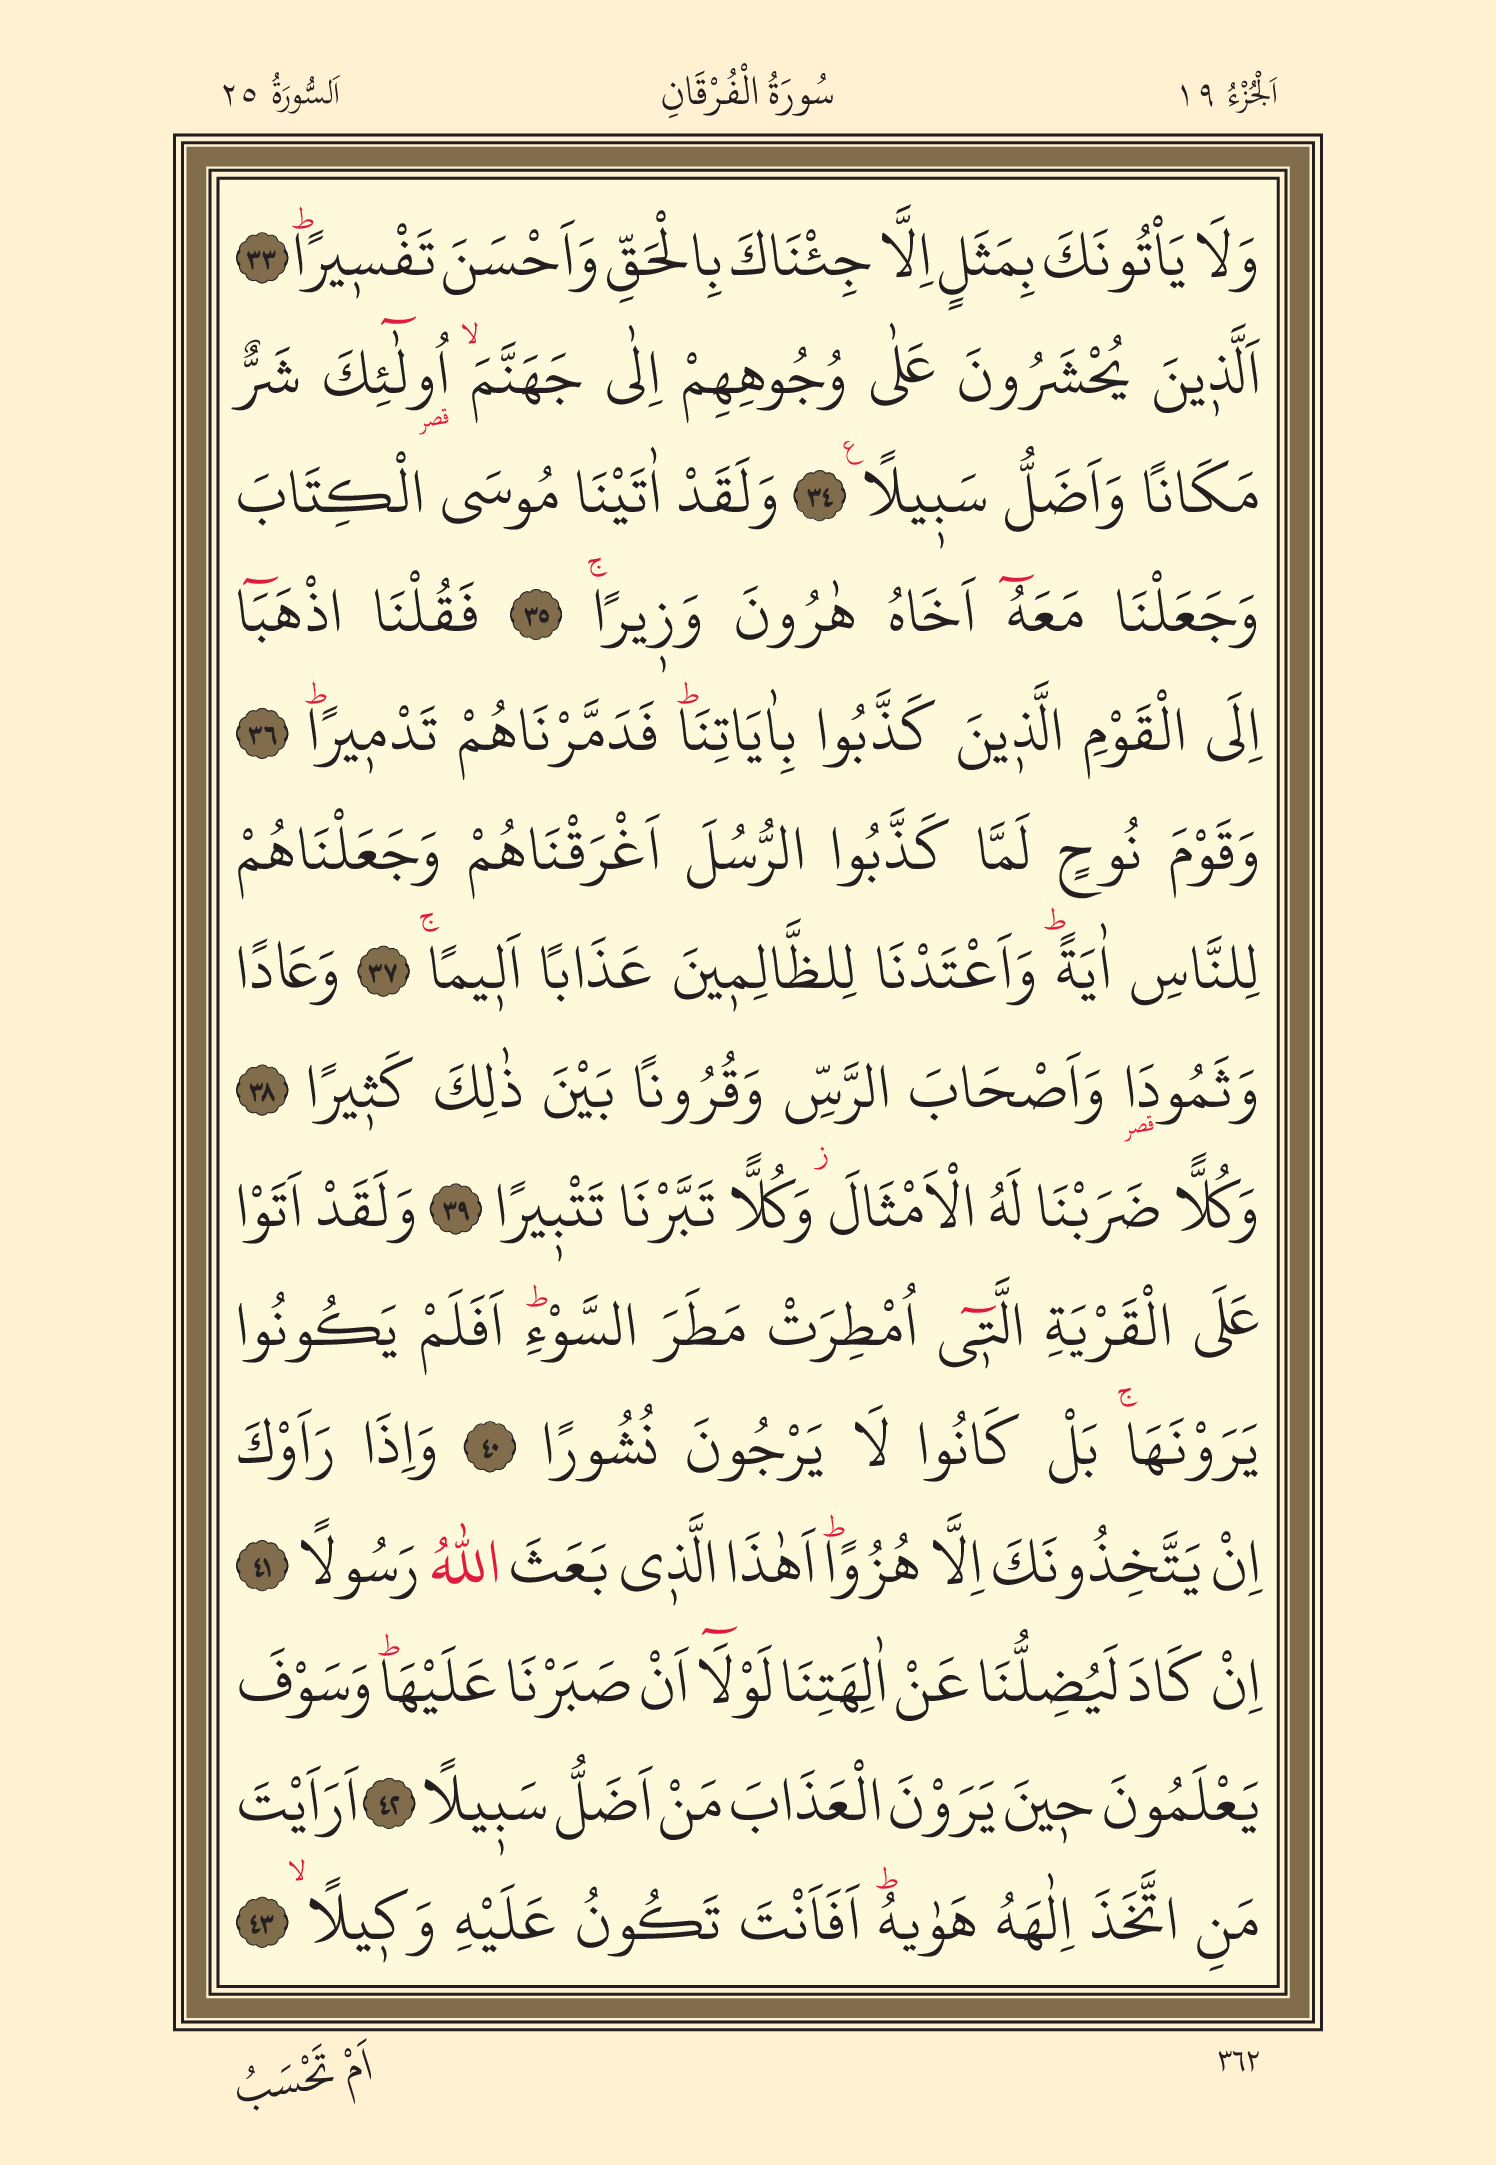 اَلْجُزْءُ ١٩ سُورَةُ الْفُرْقَانِ اَلسُّورَةُ ٢٥
وَلَا يَاْتُونَكَ بِمَثَلٍ اِلَّا جِئْنَاكَ بِالْحَقِّ وَاَحْسَنَ تَفْسٖيرًاؕ ٣٣
اَلَّذٖينَ يُحْشَرُونَ عَلٰى وُجُوهِهِمْ اِلٰى جَهَنَّمَۙ اُو۬لٰٓئِكَ شَرٌّ
قصر
مَكَانًا وَاَضَلُّ سَبٖيلًاࣖ ٣٤ وَلَقَدْ اٰتَيْنَا مُوسَى الْكِتَابَ
وَجَعَلْنَا مَعَهُٓ اَخَاهُ هٰرُونَ وَزٖيرًاۚ ٣٥ فَقُلْنَا اذْهَبَٓا
اِلَى الْقَوْمِ الَّذٖينَ كَذَّبُوا بِاٰيَاتِنَاؕ فَدَمَّرْنَاهُمْ تَدْمٖيرًاؕ ٣٦
وَقَوْمَ نُوحٍ لَمَّا كَذَّبُوا الرُّسُلَ اَغْرَقْنَاهُمْ وَجَعَلْنَاهُمْ
لِلنَّاسِ اٰيَةًؕ وَاَعْتَدْنَا لِلظَّالِمٖينَ عَذَابًا اَلٖيمًاۚ ٣٧ وَعَادًا
وَثَمُودَا وَاَصْحَابَ الرَّسِّ وَقُرُونًا بَيْنَ ذٰلِكَ كَثٖيرًا ٣٨
قصر
وَكُلًّا ضَرَبْنَا لَهُ الْاَمْثَالَؗ وَكُلًّا تَبَّرْنَا تَتْبٖيرًا ٣٩ وَلَقَدْ اَتَوْا
عَلَى الْقَرْيَةِ الَّتٖٓى اُمْطِرَتْ مَطَرَ السَّوْءِؕ اَفَلَمْ يَكُونُوا
يَرَوْنَهَاۚ بَلْ كَانُوا لَا يَرْجُونَ نُشُورًا ٤٠ وَاِذَا رَاَوْكَ
اِنْ يَتَّخِذُونَكَ اِلَّا هُزُوًاؕ اَهٰذَا الَّذٖى بَعَثَ اللّٰهُ رَسُولًا ٤١
اِنْ كَادَ لَيُضِلُّنَا عَنْ اٰلِهَتِنَا لَوْلَٓا اَنْ صَبَرْنَا عَلَيْهَاؕ وَسَوْفَ
يَعْلَمُونَ حٖينَ يَرَوْنَ الْعَذَابَ مَنْ اَضَلُّ سَبٖيلًا ٤٢ اَرَاَيْتَ
مَنِ اتَّخَذَ اِلٰهَهُ هَوٰيهُؕ اَفَاَنْتَ تَكُونُ عَلَيْهِ وَكٖيلًاۙ ٤٣
٣٦٢ اَمْ تَحْسَبُ